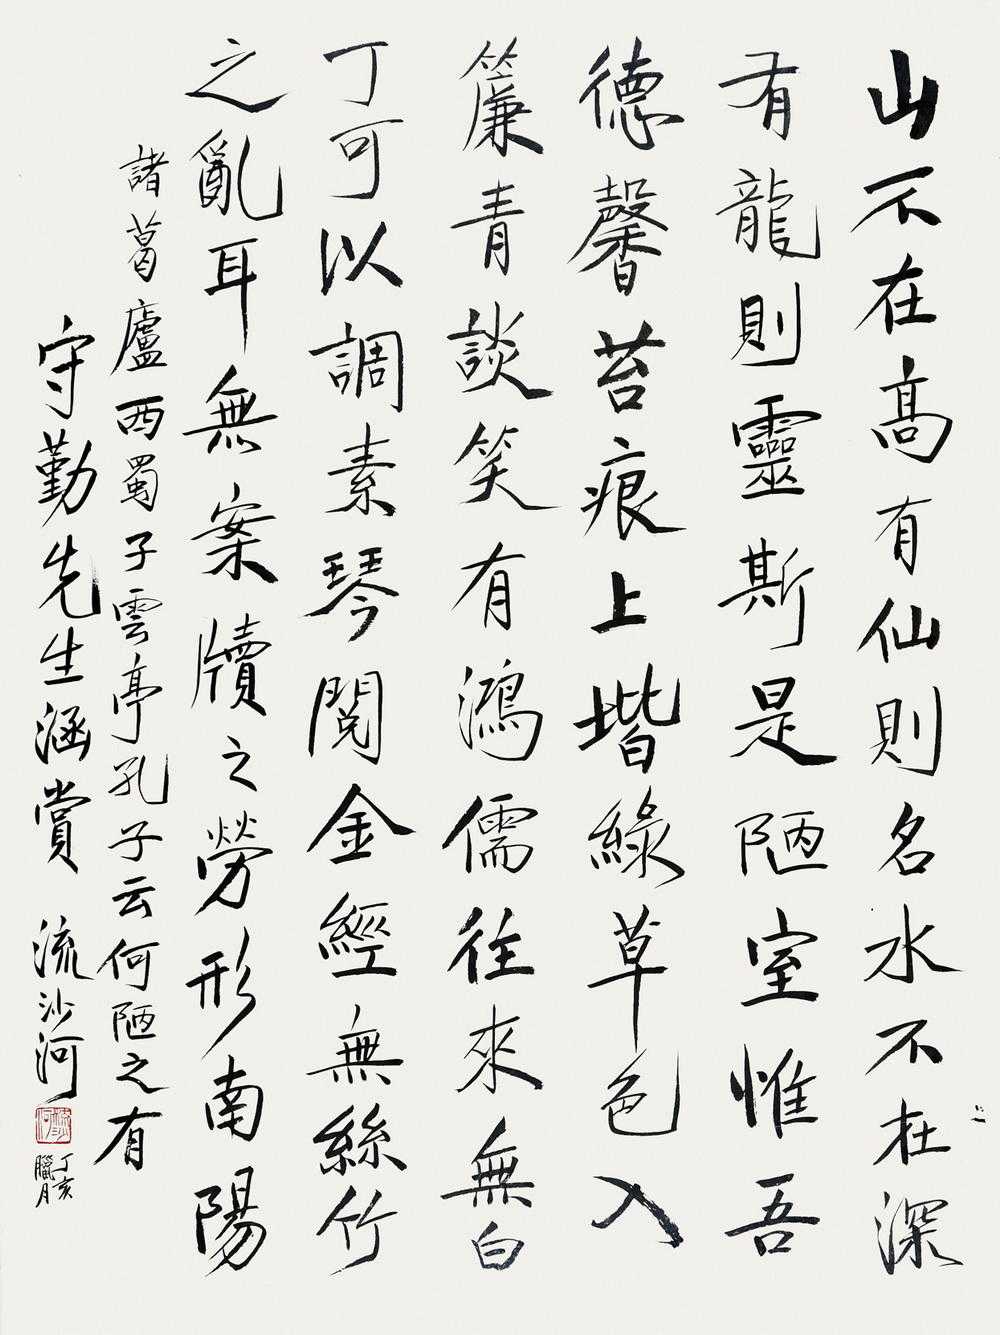 山不在高有仙則名水不在深
有龍則靈斯是陋室惟吾
德馨苔痕上堦綠草色入
簾青談笑有鴻儒往來無白
丁可以調素琴閱金經無絲竹
之亂耳無案牘之勞形南陽
諸葛廬西蜀子雲亭孔子云何陋之有
守勤先生涵賞 流沙河
丁亥
臘月